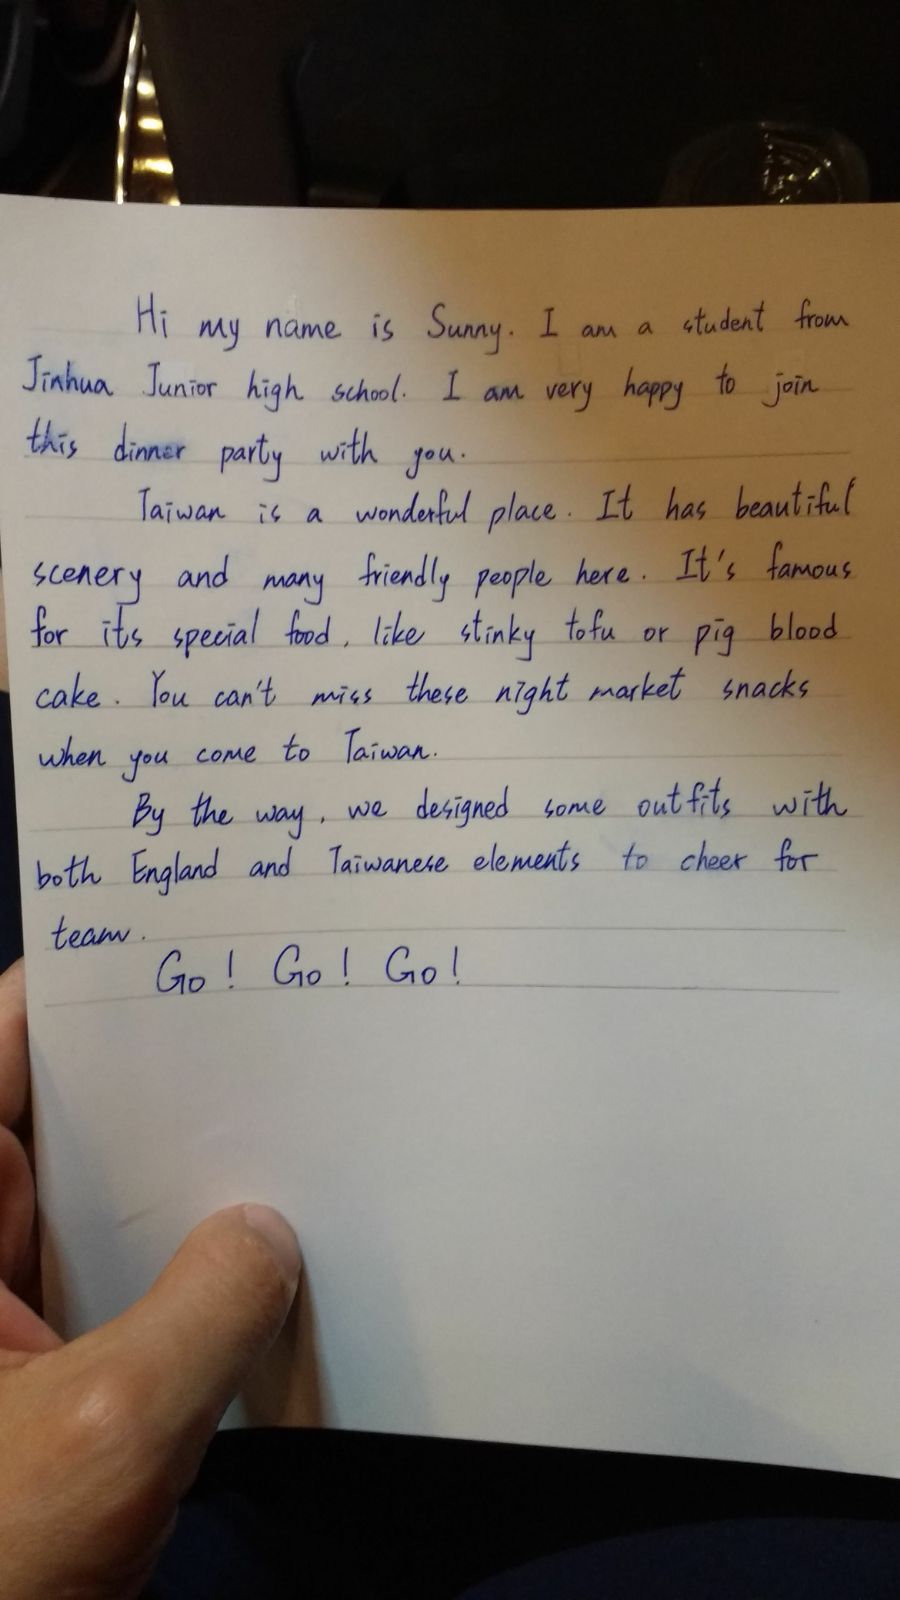 Hi my name is Sunny. I am a student from
Jinhua Junior high school. I am very happy to join
this dinner party with you.
Taiwan is a wonderful place. It has beautiful
scenery and many friendly people here. It's famous
for its special food, like stinky tofu or pig blood
cake. You can't miss these night market snacks
when you come to Taiwan.
By the way, we designed some outfits with
both England and Taiwanese elements to cheer for
team.
Go! Go! Go!